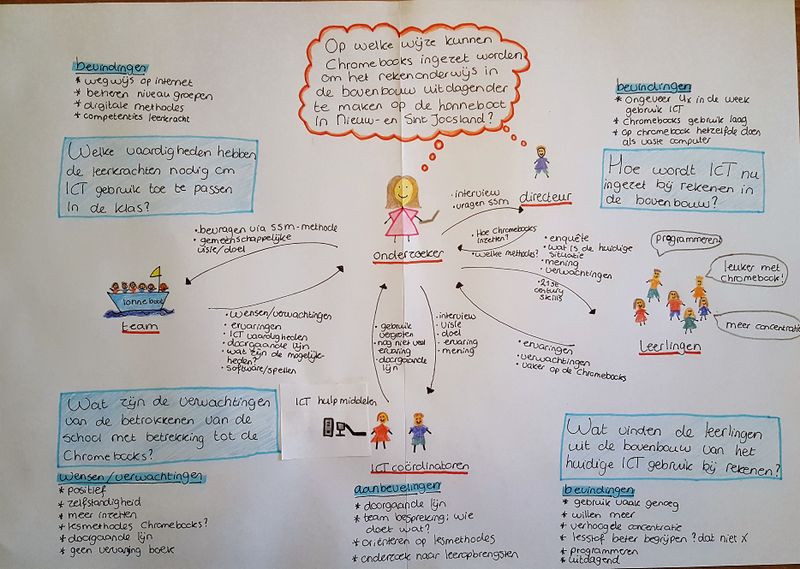 Op welke wijze kunnen
Chromebooks ingezet worden
om het rekenonderwijs in
de bovenbouw uitdagender
te maken op de honneboot
in Nieuw- en Sint Joosland?
bevindingen
* wegwijs op internet
* beheren niveau groepen
* digitale methodes
* competenties leerkracht
Welke vaardigheden hebben
de leerkrachten nodig om
ICT gebruik toe te passen
in de klas?
bevindingen
* Ongeveer 4x in de week
gebruik ICT
* Chromebooks gebruik laag
* Op chromebook hetzelfde doen
als vaste computer
Hoe wordt ICT nu
ingezet bij rekenen in
de bovenbouw?
directeur
• interview
• vragen ssm
• Hoe Chromebooks
inzetten?
• welke methodes?
onderzoeker
• bevragen via ssm-methode
• gemeenschappelijke
visie/doel
honneboot
team
• wensen/verwachtingen
• ervaringen
• ICT vaardigheden
• doorgaande lijn
• wat zijn de mogelijk-
heden?
• software/spellen
• enquête
• wat is de huidige
situatie
• mening
• verwachtingen
• 21st
century
skills
programmeren!
leuker met
chromebook!
meer concentratie
Leerlingen
• ervaringen
• verwachtingen
• vaker op de Chromebooks
• gebruik
vergroten
• nog niet veel
ervaring
• doorgaande
lijn
• interview
• visie
• doel
• ervaring
• mening
ICT hulpmiddelen
ICT coördinatoren
aanbevelingen
* doorgaande lijn
* team bespreking; wie
doet wat?
* oriënteren op lesmethodes
* onderzoek naar leeropbrengsten
Wat zijn de verwachtingen
van de betrokkenen van de
school met betrekking tot de
Chromebooks?
wensen/verwachtingen
* positief
* zelfstandigheid
* meer inzetten
* lesmethodes Chromebooks?
* doorgaande lijn
* geen vervanging boek
Wat vinden de leerlingen
uit de bovenbouw van het
huidige ICT gebruik bij rekenen?
bevindingen
* gebruik vaak genoeg
* willen meer
* verhoogde concentratie
* lesstof beter begrijpen? dat niet x
* programmeren
* uitdagend